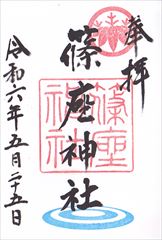 奉拝
篠座神社
篠座
神社
令和六年五月二十五日